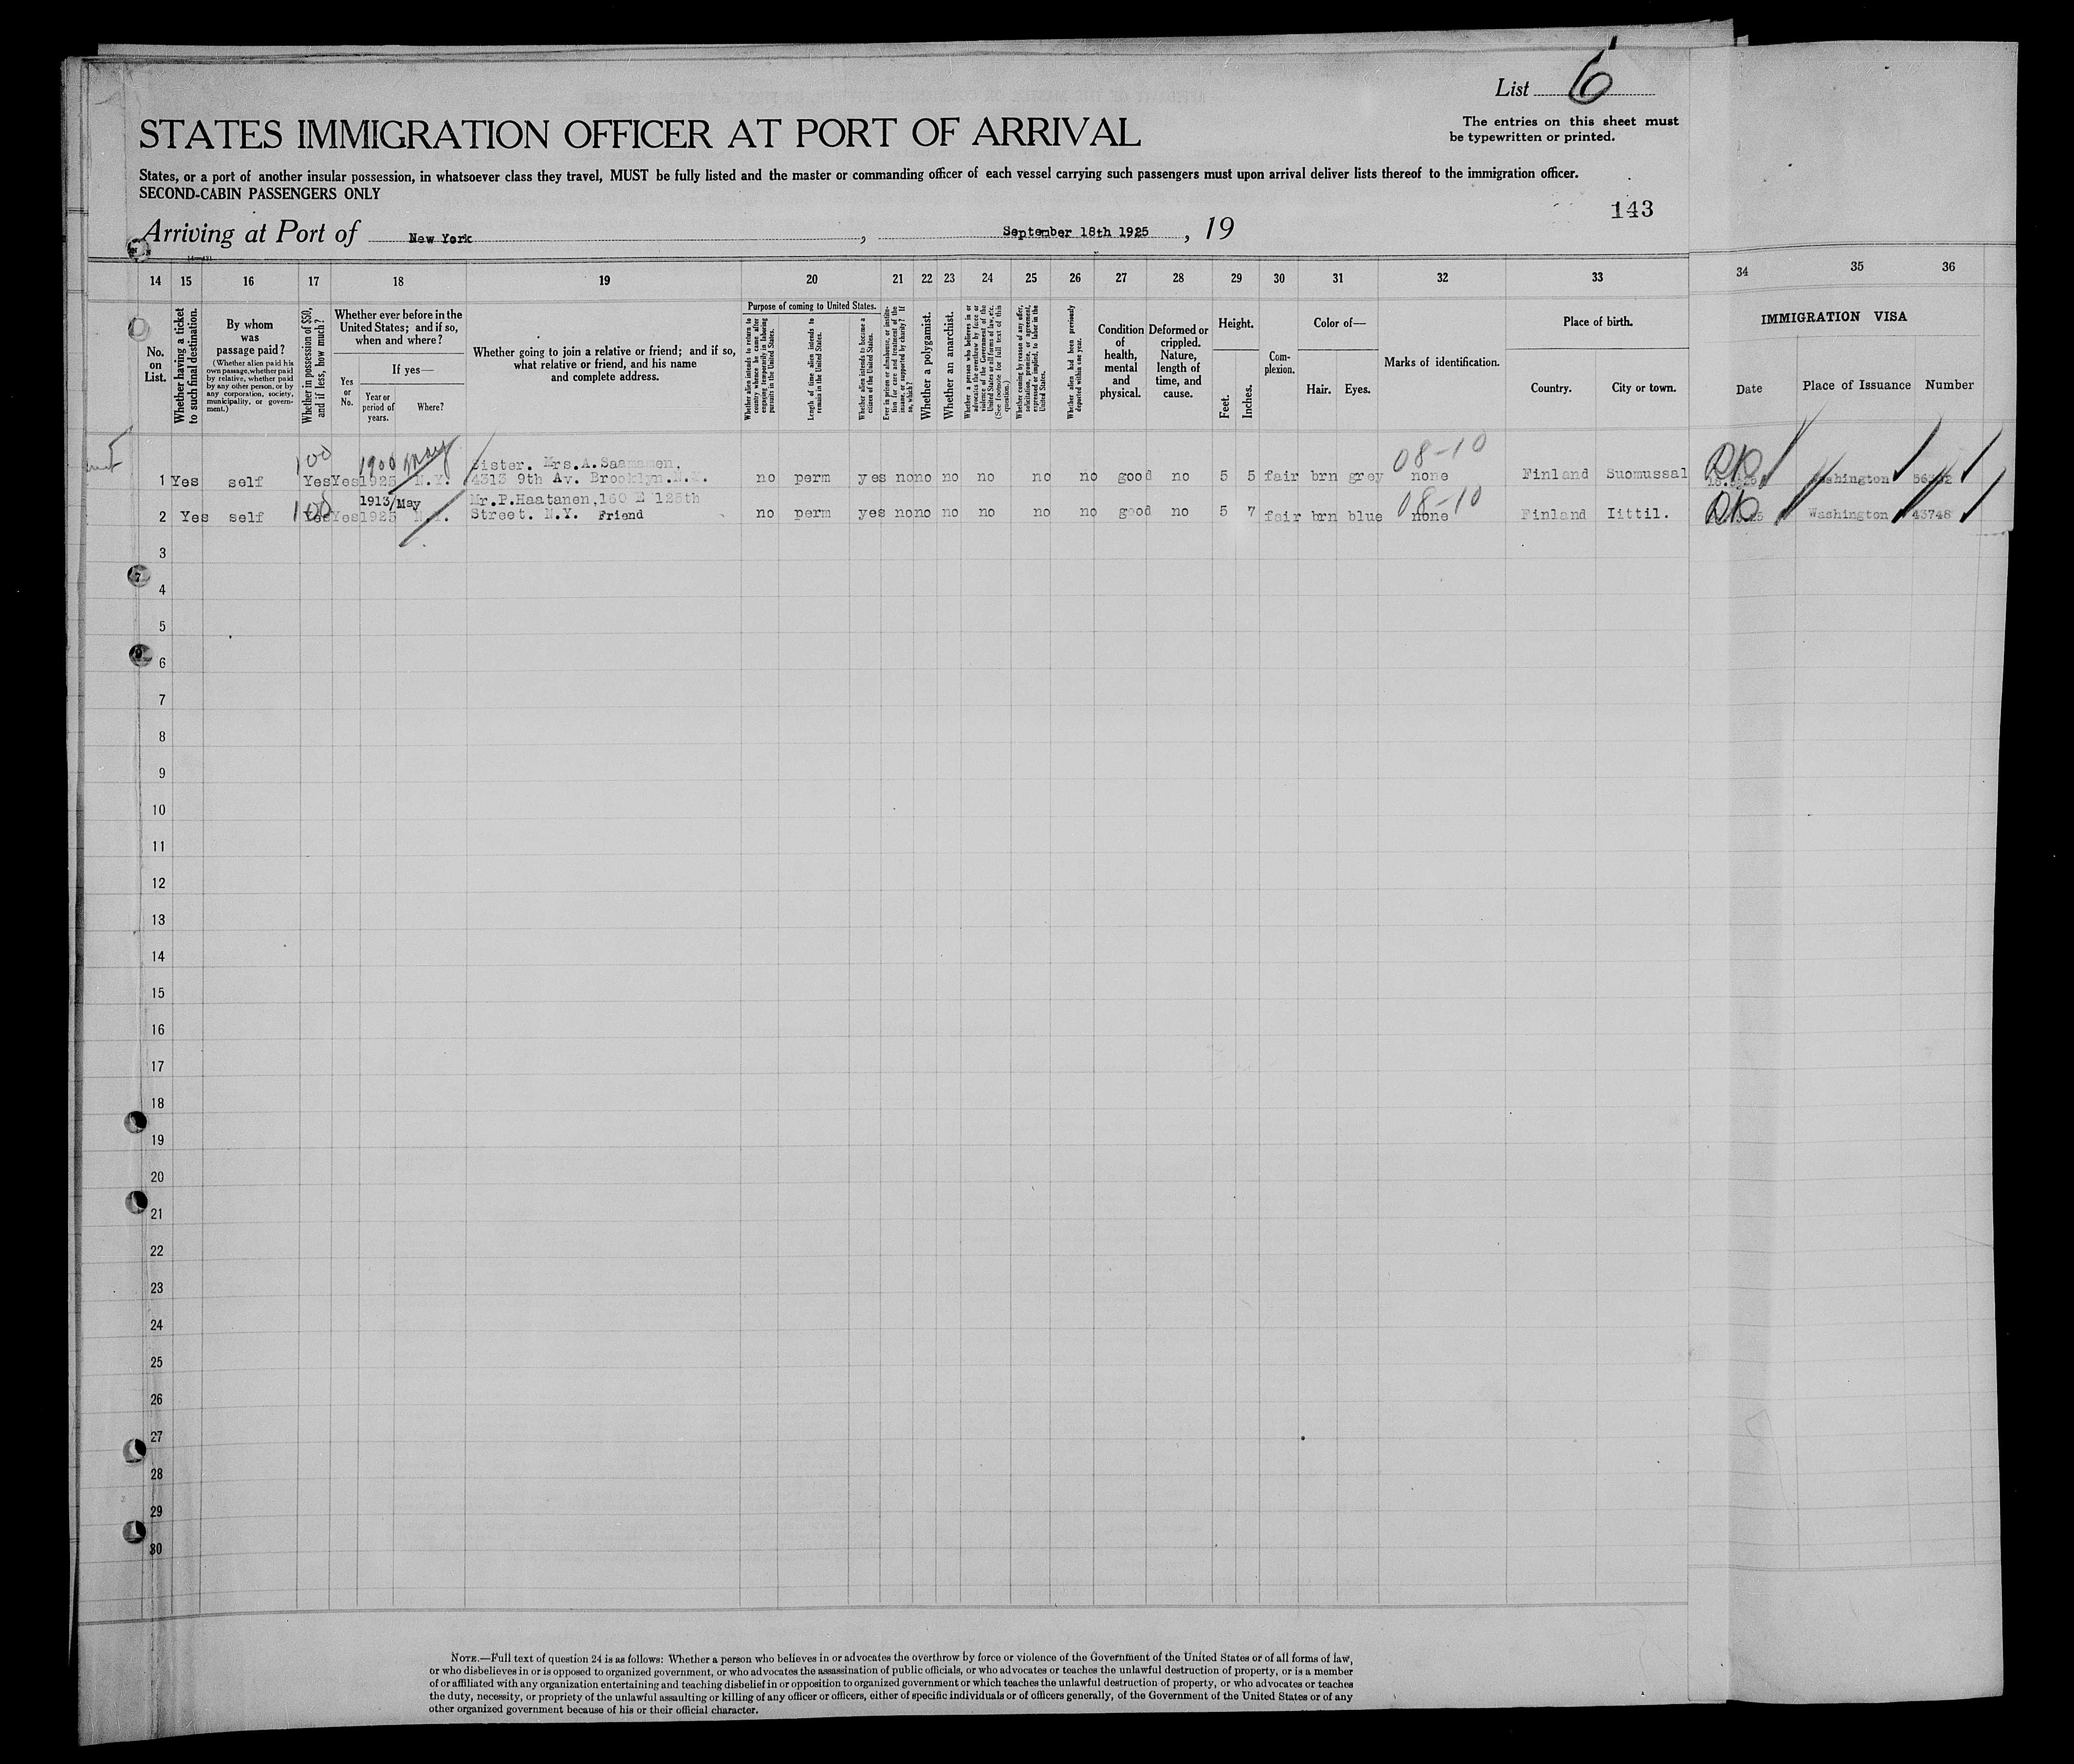 List 6
The entries on this sheet must
be typewritten or printed.
STATES IMMIGRATION OFFICER AT PORT OF ARRIVAL
States, or a port of another insular possession, in whatsoever class they travel, MUST be fully listed and the master or commanding officer of each vessel carrying such passengers must upon arrival deliver lists thereof to the immigration officer.
SECOND-CABIN PASSENGERS ONLY
143
Arriving at Port of New York, September 18th 1925, 19
14 15 16 17 18 19 20 21 22 23 24 25 26 27 28 29 30 31 32 33 34 35 36
No. on List.
Whether having a ticket to such final destination.
By whom was passage paid?
(Whether alien paid his own passage, whether paid by relative, whether paid by any other person, or by any corporation, society, municipality, or government.)
Whether in possession of $50, and if less, how much?
Whether ever before in the United States; and if so, when and where?
Yes or No.
If yes—
Year or period of years.
Where?
Whether going to join a relative or friend; and if so, what relative or friend, and his name and complete address.
Purpose of coming to United States.
Whether alien intends to return to country whence he came after engaging temporarily in laboring pursuits in the United States.
Length of time alien intends to remain in the United States.
Whether alien intends to become a citizen of the United States.
Ever in prison or almshouse, or institution for care and treatment of the insane, or supported by charity? If so, which?
Whether a polygamist.
Whether an anarchist.
Whether a person who believes in or advocates the overthrow by force or violence of the Government of the United States or all forms of law, etc. (See footnote for full text of this question.)
Whether coming by reason of any offer, solicitation, promise, or agreement, expressed or implied, to labor in the United States.
Whether alien had been previously deported within one year.
Condition of health, mental and physical.
Deformed or crippled. Nature, length of time, and cause.
Height.
Feet. Inches.
Complexion.
Color of—
Hair. Eyes.
Marks of identification.
Place of birth.
Country. City or town.
IMMIGRATION VISA
Date Place of Issuance Number
100 1900 May Sister. Mrs.A. 08-10
1 Yes self Yes Yes 1925 N.Y. 4313 9th Av. Brooklyn.N.Y. no perm yes no no no no no no good no 5 5 fair brn grey none Finland Suomussal
100 1913/May Mr.P.Haatanen,160 E 125th 08-10
2 Yes self Yes Yes 1925 N.Y. Street. N.Y. Friend no perm yes no no no no no no good no 5 7 fair brn blue none Finland Iittil. Washington 43748
3
4
5
6
7
8
9
10
11
12
13
14
15
16
17
18
19
20
21
22
23
24
25
26
27
28
29
30
NOTE.—Full text of question 24 is as follows: Whether a person who believes in or advocates the overthrow by force or violence of the Government of the United States or of all forms of law,
or who disbelieves in or is opposed to organized government, or who advocates the assassination of public officials, or who advocates or teaches the unlawful destruction of property, or is a member
of or affiliated with any organization entertaining and teaching disbelief in or opposition to organized government or which teaches the unlawful destruction of property, or who advocates or teaches
the duty, necessity, or propriety of the unlawful assaulting or killing of any officer or officers, either of specific individuals or of officers generally, of the Government of the United States or of any
other organized government because of his or their official character.